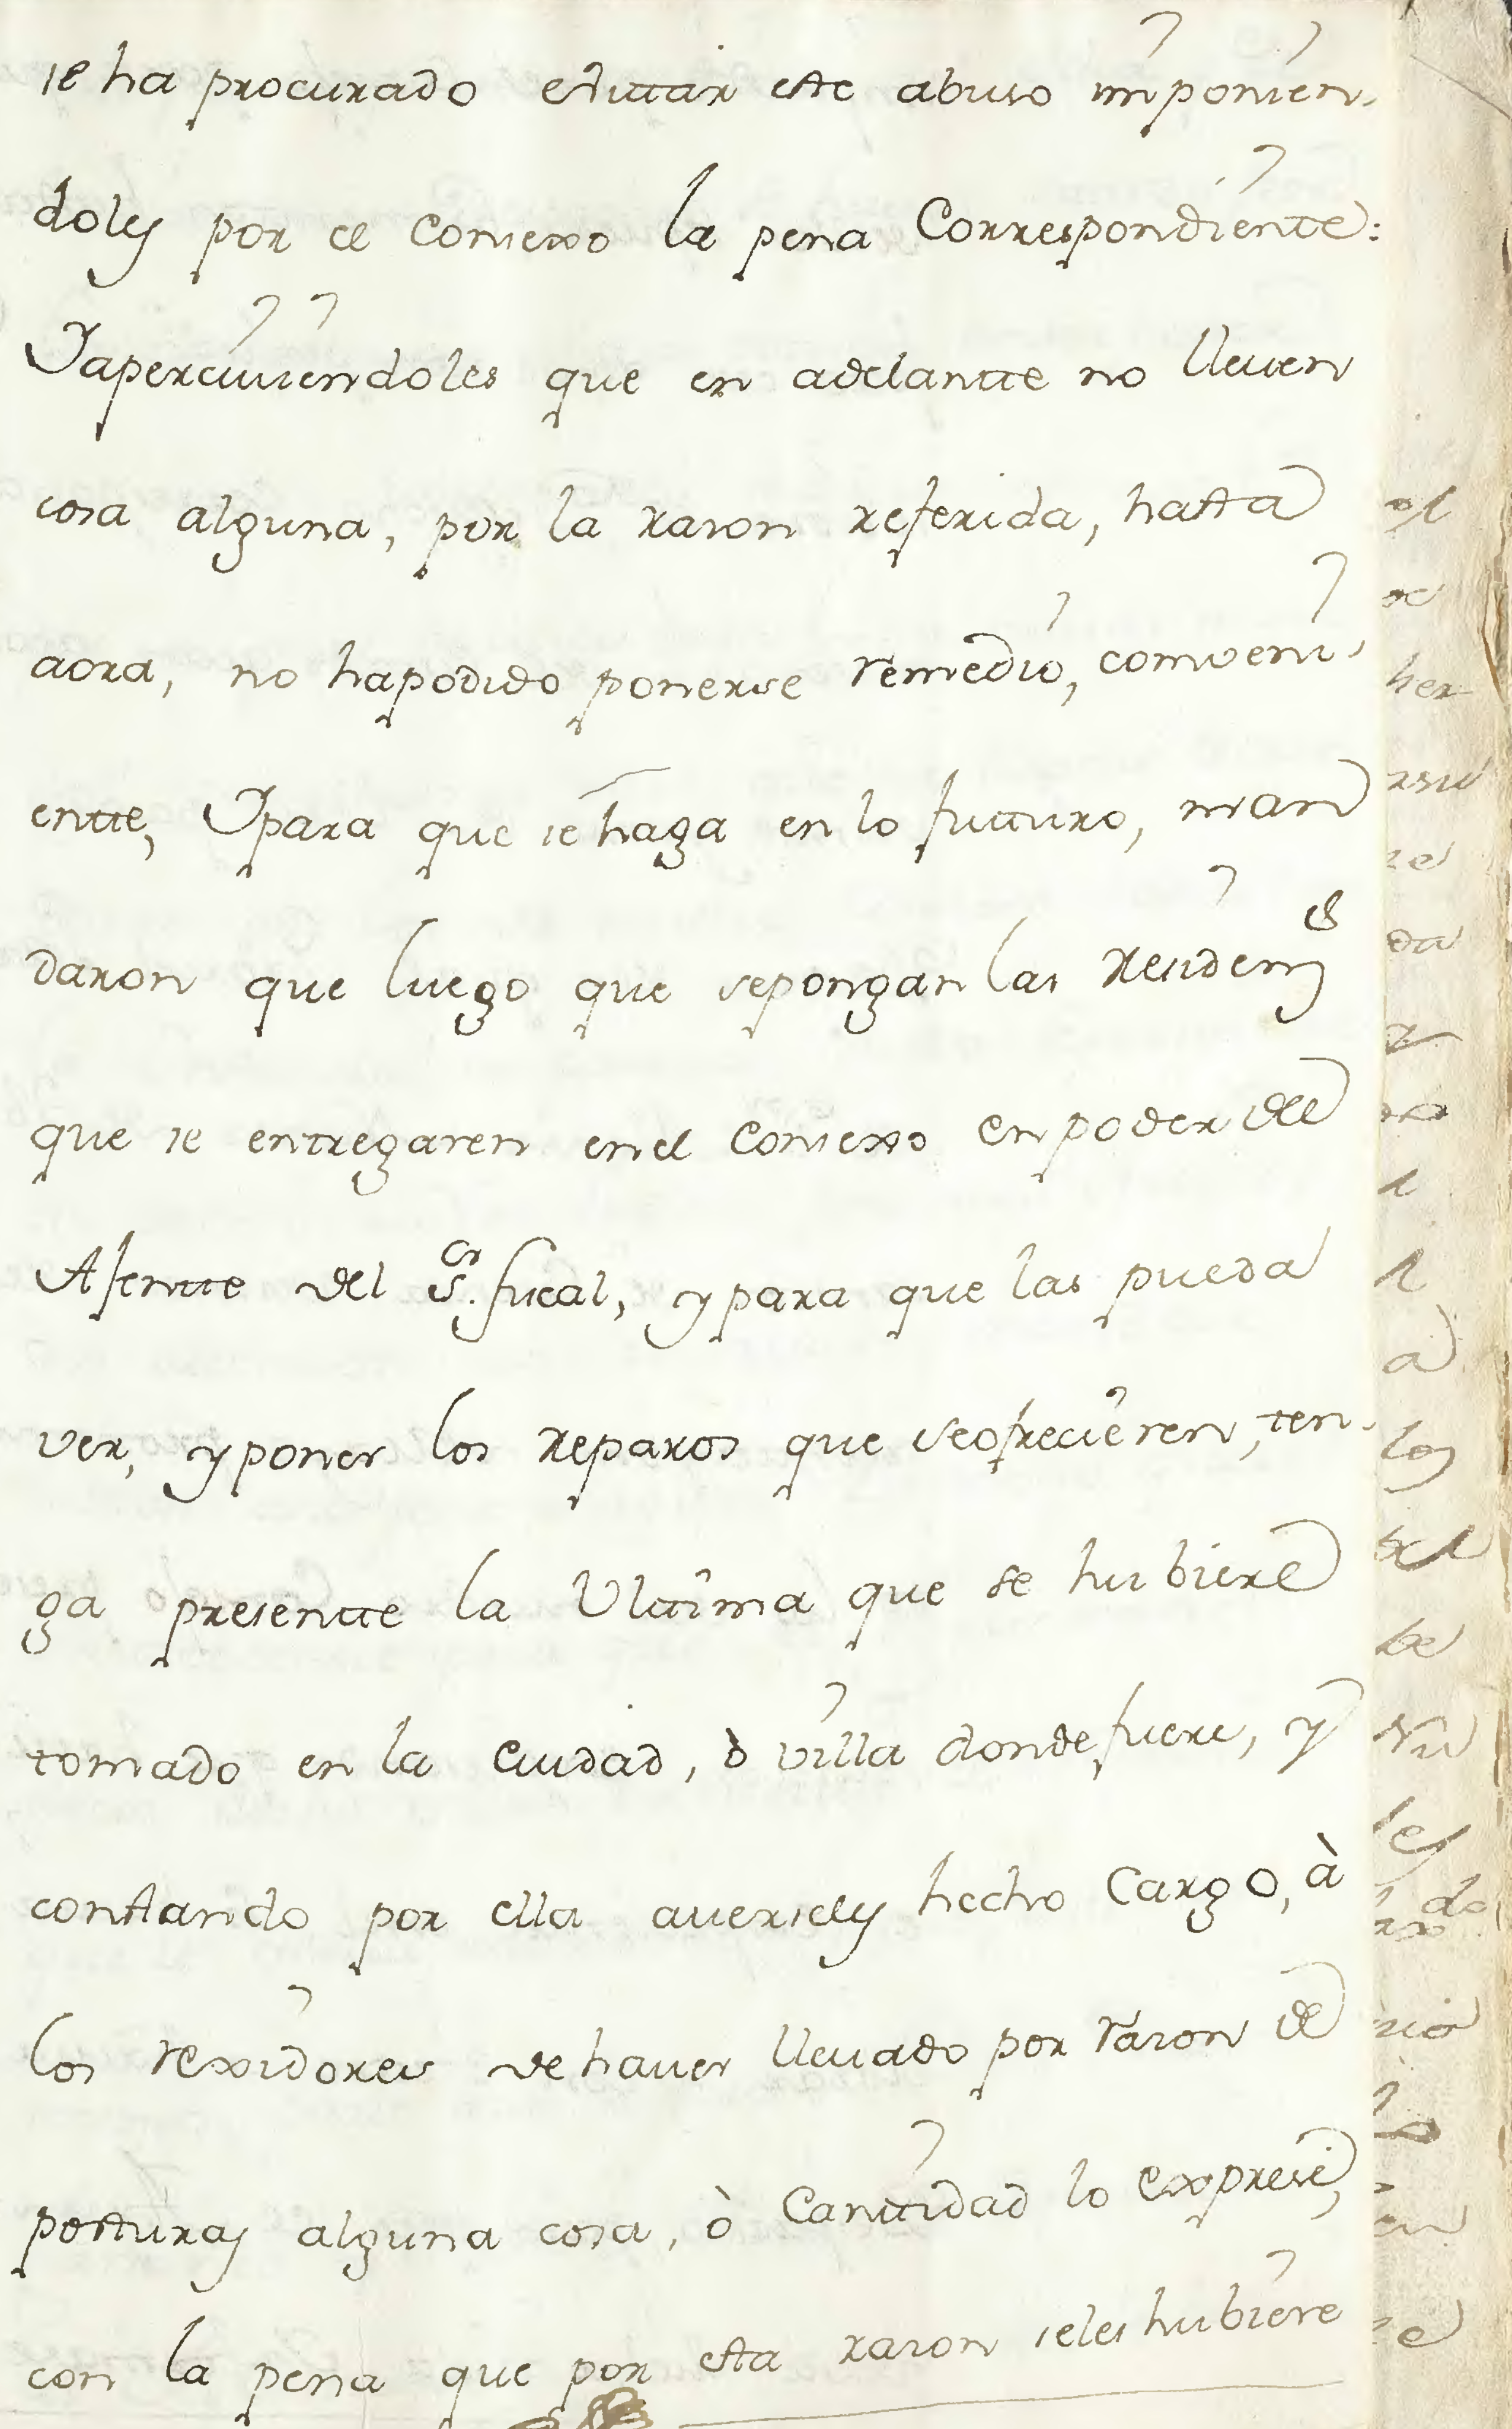 se ha procurado evittar este abuso imponien-
doles por el Consexo la pena Correspondiente:
Yaperciuiendoles que en adelantte no lleuen
cosa alguna, por la rason referida, hasta
aora, no hapodido ponerse remedio, conveni-
entte, Ypara que se haga en lo futturo, man
daron que luego que sepongan las residen.s
que se entregaren enel Consexo enpoder del
Ajentte del S.or fiscal, y para que las pueda
ver, y poner los reparos que seofrecieren, ten-
ga presentte la Ulttima que se hubiere
tomado en la Ciudad, ò villa dondefuere, y
constando por ella auerseles hecho Cargo, à
los rexidores dehauer lleuado por rason de
posturas alguna cosa, ò Canttidad lo exprese,
con la pena que por esta rason seles hubiere